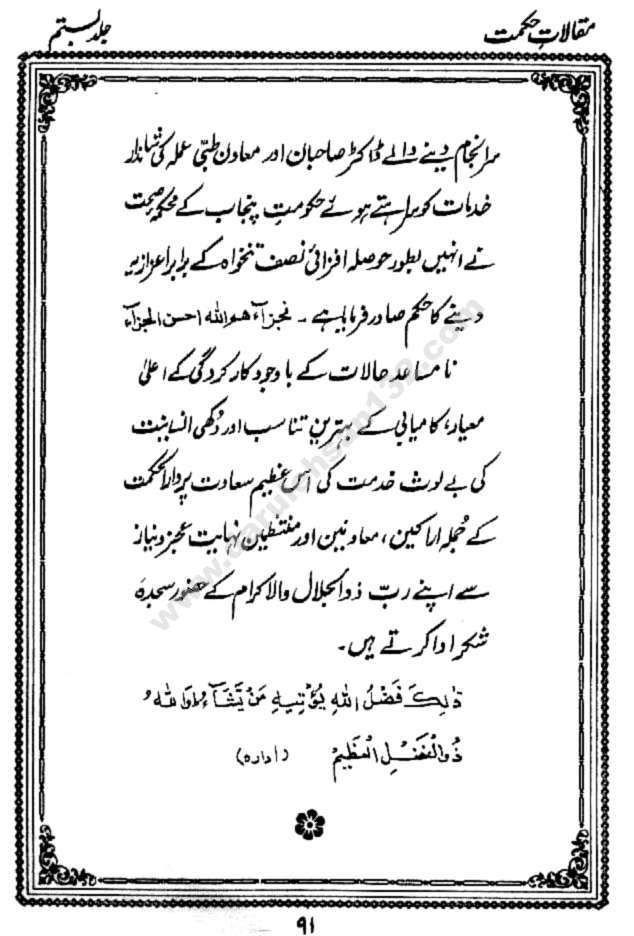 مقالاتِ حکمت
جلد بستم
سرانجام دینے والے ڈاکٹر صاحبان اور معاون طبّی عملہ کی شاندار
خدمات کو سراہتے ہوئے حکومتِ پنجاب کے محکمہ صحت
نے انہیں بطور حوصلہ افزائی نصف تنخواہ کے برابر اعزازیہ
دینے کا حکم صادر فرمایا ہے ۔ فجزآءھم اللہ احسن الجزآء
نا مساعد حالات کے باوجود کارکردگی کے اعلیٰ
معیار، کامیابی کے بہترین تناسب اور دُکھی انسانیت
کی بے لوث خدمت کی اس عظیم سعادت پر دار الحکمت
کے جُملہ اراکین، معاونین اور منتظمین نہایت عجز و نیاز
سے اپنے ربّ ذوالجلال والاکرام کے حضور سجدہَ
شکر ادا کرتے ہیں۔
ذٰلِکَ فَضْلُ اللهِ یُؤْتِیْهِ مَنْ یَّشَآءُ وَاللهُ
ذُوالْفَضْلِ الْعَظِیْمِ (ادارہ)
www.darulehsan132.com
۹۱